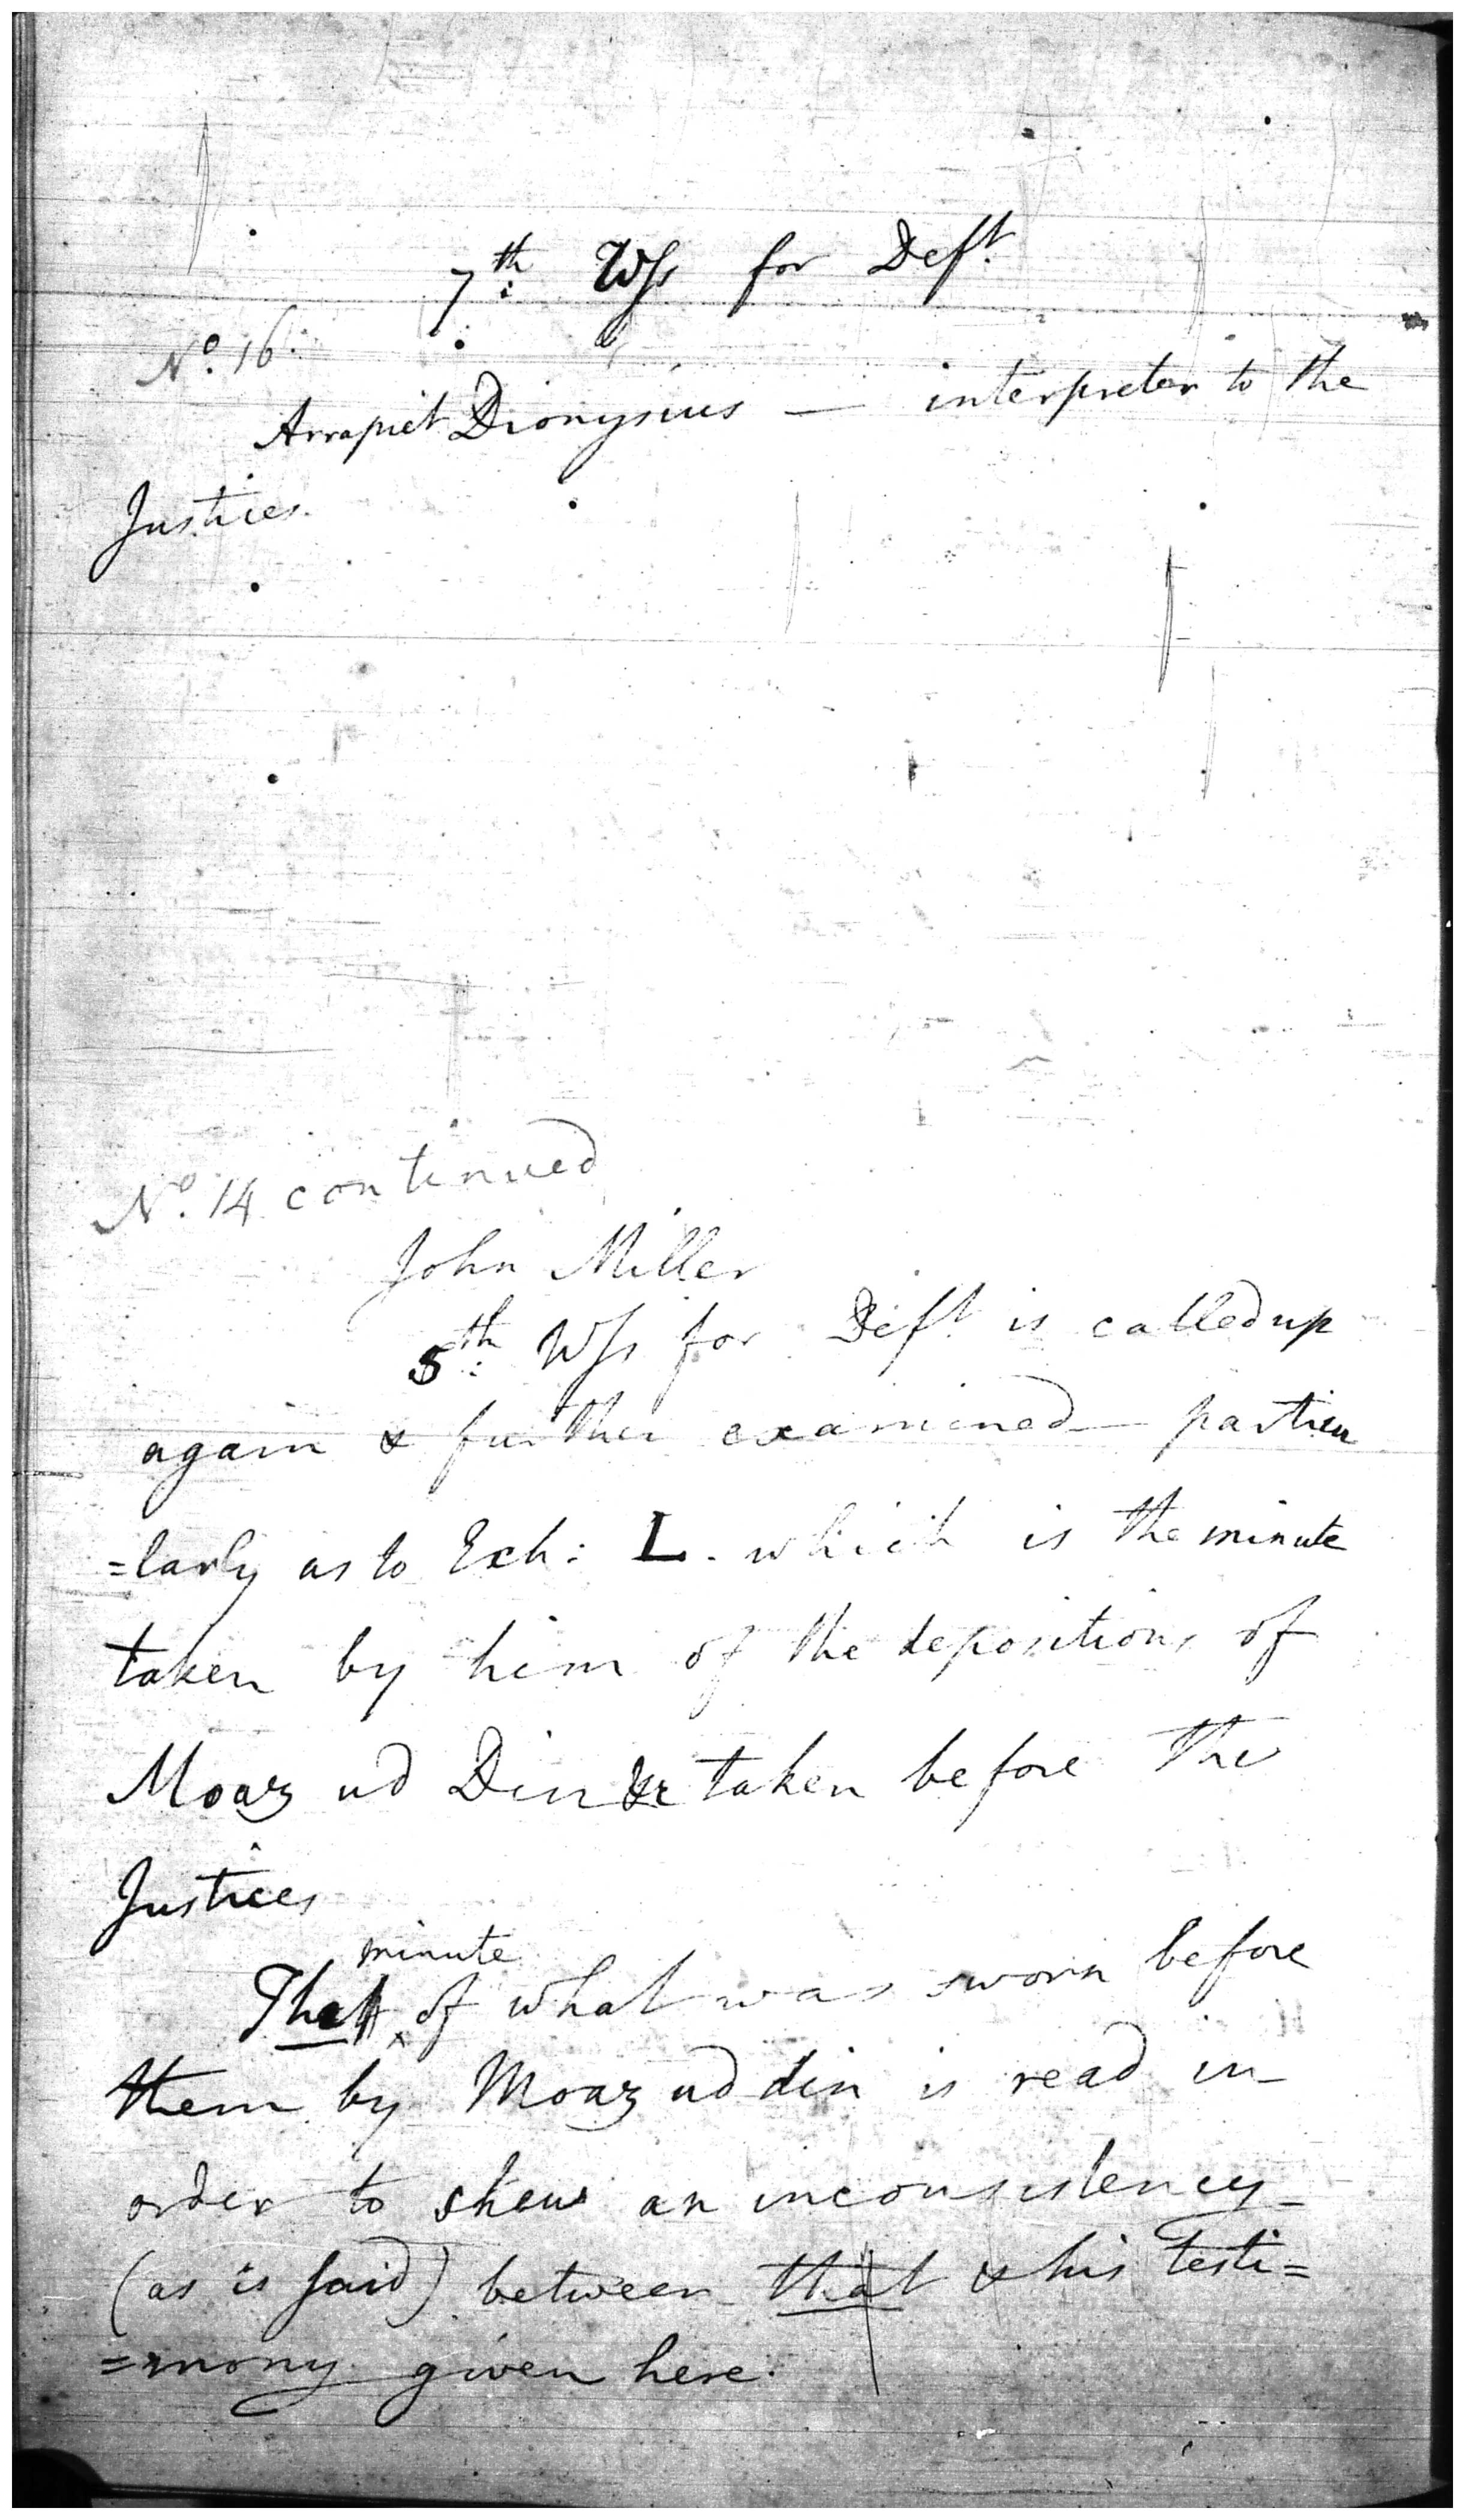 7th: Wss for Deft
No. 16.
Arrapiet Dionysius — interpreter to the
Justices.
No. 14 continued
John Miller
5th: Wss for Deft is called up
again & further examined — particu
=larly as to Exh: L. which is the minute
taken by him of the depositions of
Moaz ud Din &c taken before the
Justices
minute
That ^ of what was sworn before
them by Moaz ud din is read in
order to shew an inconsistency
(as is said) between that & his testi=
=mony given here.